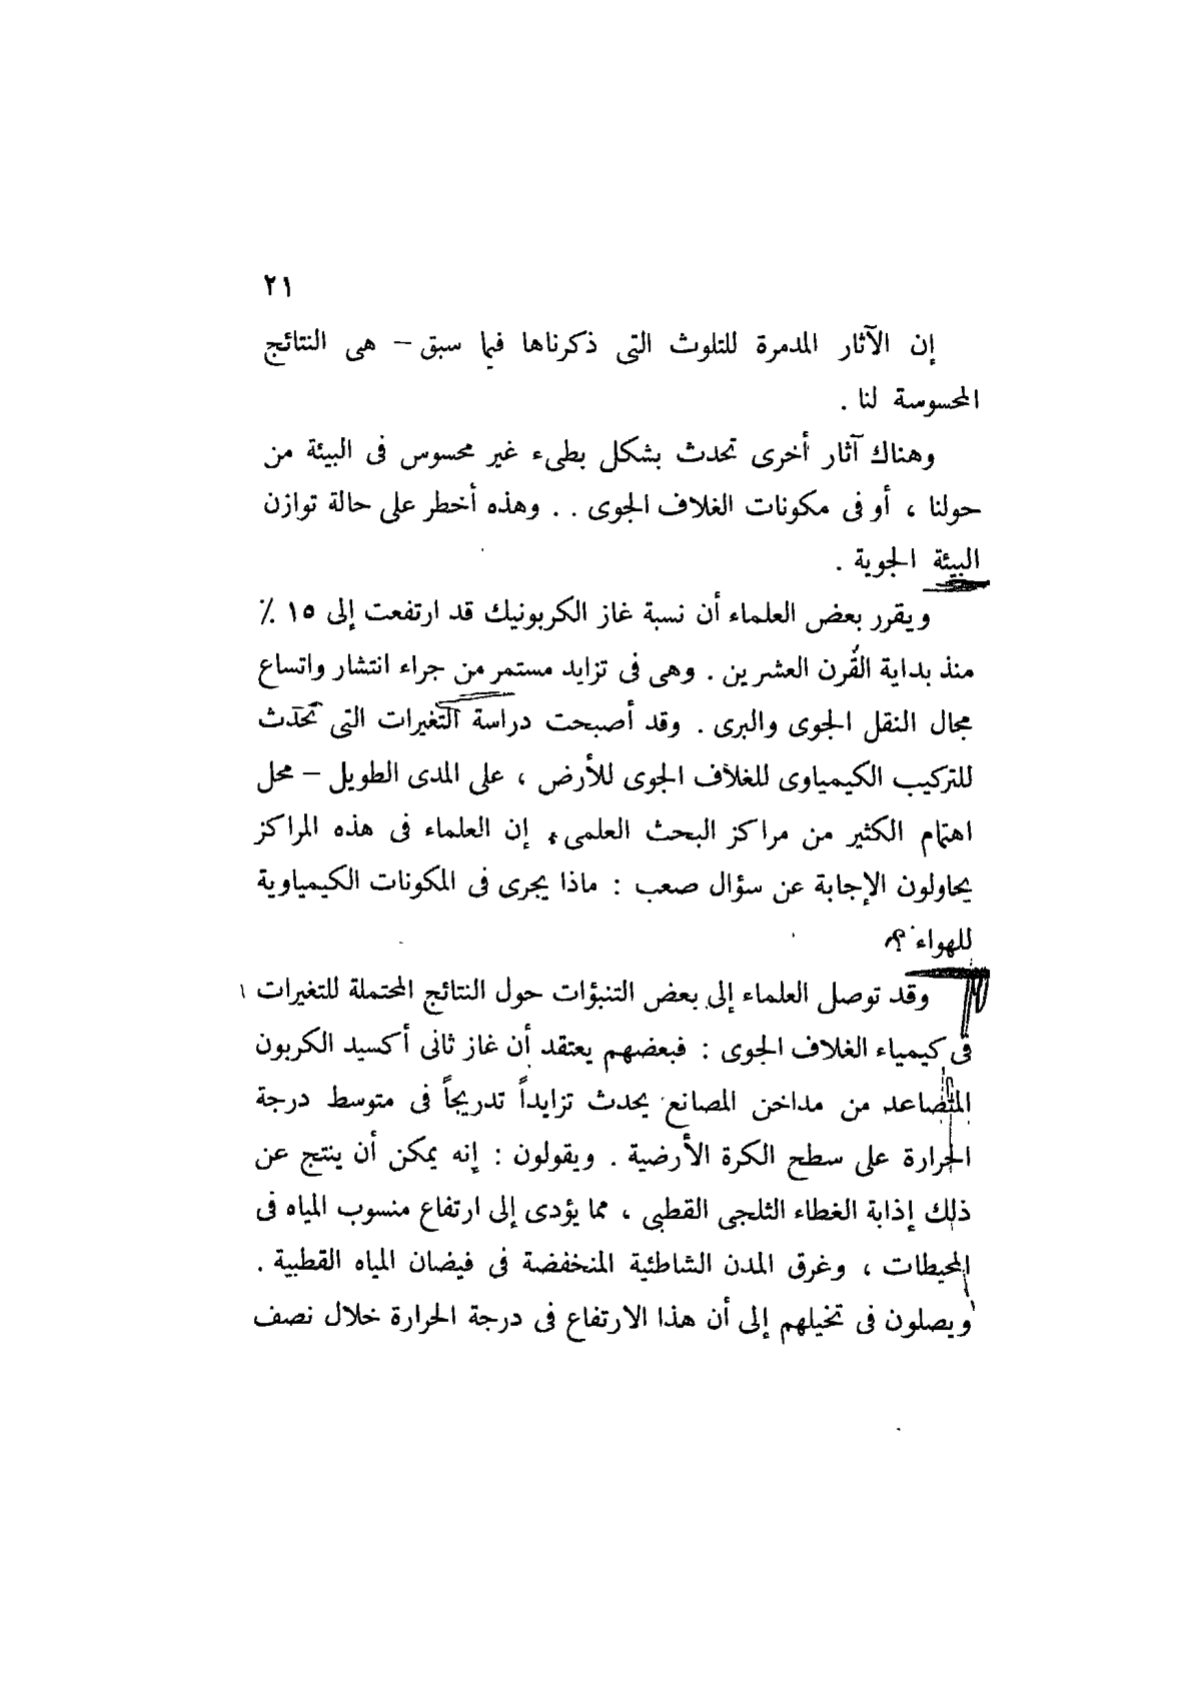 ٢١
إن الآثار المدمرة للتلوث التى ذكرناها فيما سبق – هى النتائج
المحسوسة لنا .
وهناك آثار أخرى تحدث بشكل بطىء غير محسوس فى البيئة من
حولنا ، أو فى مكونات الغلاف الجوى . . وهذه أخطر على حالة توازن
البيئة الجوية .
ويقرر بعض العلماء أن نسبة غاز الكربونيك قد ارتفعت إلى ١٥ ٪
منذ بداية القرن العشرين . وهى فى تزايد مستمر من جراء انتشار واتساع
مجال النقل الجوى والبرى . وقد أصبحت دراسة التغيرات التى تحدث
للتركيب الكيمياوى للغلاف الجوى للأرض ، على المدى الطويل – محل
اهتمام الكثير من مراكز البحث العلمى ، إن العلماء فى هذه المراكز
يحاولون الإجابة عن سؤال صعب : ماذا يجرى فى المكونات الكيمياوية
للهواء ؟
وقد توصل العلماء إلى بعض التنبؤات حول النتائج المحتملة للتغيرات
فى كيمياء الغلاف الجوى : فبعضهم يعتقد أن غاز ثانى أكسيد الكربون
المتصاعد من مداخن المصانع يحدث تزايداً تدريجاً فى متوسط درجة
الحرارة على سطح الكرة الأرضية . ويقولون : إنه يمكن أن ينتج عن
ذلك إذابة الغطاء الثلجى القطبى ، مما يؤدى إلى ارتفاع منسوب المياه فى
المحيطات ، وغرق المدن الشاطئية المنخفضة فى فيضان المياه القطبية .
ويصلون فى تخيلهم إلى أن هذا الارتفاع فى درجة الحرارة خلال نصف